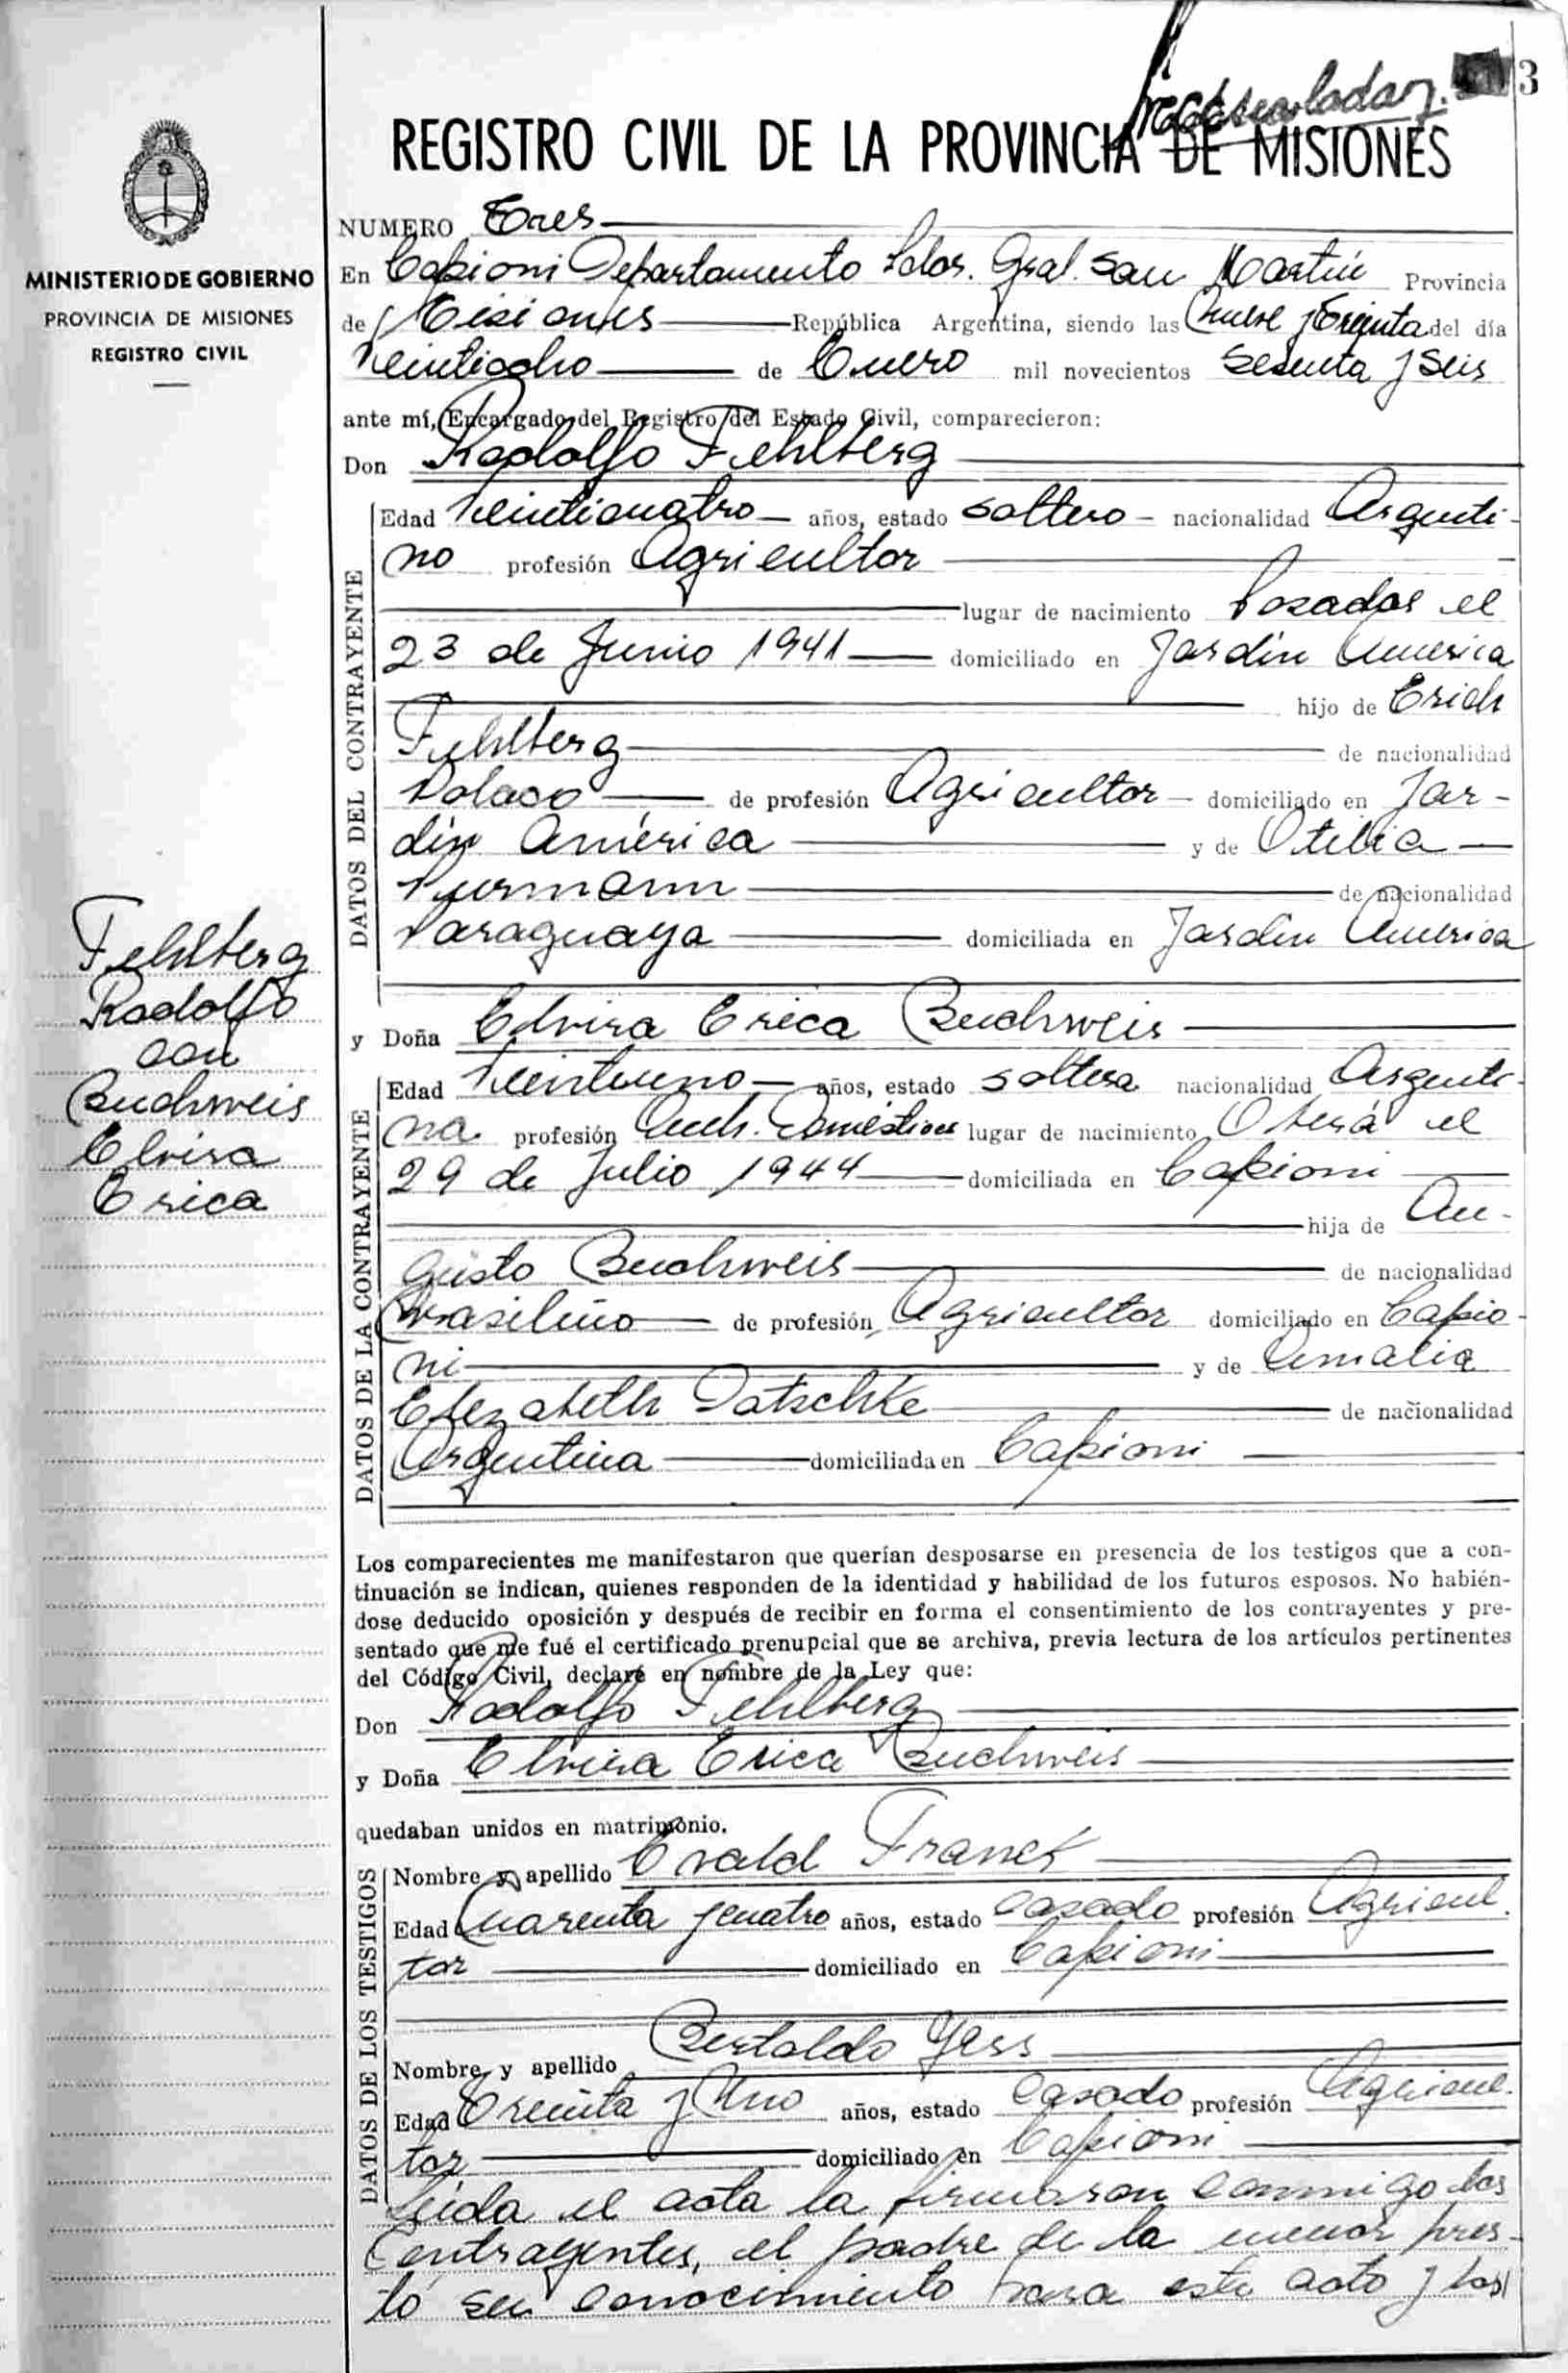 3
REGISTRO CIVIL DE LA PROVINCIA DE MISIONES
MINISTERIO DE GOBIERNO
PROVINCIA DE MISIONES
REGISTRO CIVIL
NUMERO Tres
En Capioni Departamento Ldor. Gral. San Martín Provincia
de Misiones República Argentina, siendo las Nueve y Treinta del día
Veintiocho de Enero mil novecientos Sesenta y Seis
ante mí, Encargado del Registro del Estado Civil, comparecieron:
Don Rodolfo Fehlberg
DATOS DEL CONTRAYENTE
Edad Veinticuatro años, estado soltero nacionalidad Argenti-
no profesión Agricultor
lugar de nacimiento Posadas el
23 de Junio 1941 domiciliado en Jardin America
hijo de Erich
Fehlberg de nacionalidad
Polaco de profesión Agricultor domiciliado en Jar-
din América y de Otilia
de nacionalidad
Paraguaya domiciliada en Jardin America
Fehlberg
Rodolfo
con
Buchweis
Elvira
Erica
y Doña Elvira Erica Buchweis
DATOS DE LA CONTRAYENTE
Edad Veintiuno años, estado soltera nacionalidad Argenti-
na profesión Domésticos lugar de nacimiento Oberá el
29 de Julio 1944 domiciliada en Capioni
hija de Au-
gusto Buchweis de nacionalidad
Brasileño de profesión Agricultor domiciliado en Capio-
ni y de Amalia
Elezabeth Datschke de nacionalidad
Argentina domiciliada en Capioni
Los comparecientes me manifestaron que querían desposarse en presencia de los testigos que a con-
tinuación se indican, quienes responden de la identidad y habilidad de los futuros esposos. No habién-
dose deducido oposición y después de recibir en forma el consentimiento de los contrayentes y pre-
sentado que me fué el certificado prenupcial que se archiva, previa lectura de los artículos pertinentes
del Código Civil, declaré en nombre de la Ley que:
Don Rodolfo Fehlberg
y Doña Elvira Erica Buchweis
quedaban unidos en matrimonio.
DATOS DE LOS TESTIGOS
Nombre y apellido Evald Franck
Edad Cuarenta y cuatro años, estado Casado profesión Agricul-
tor domiciliado en Capioni
Nombre y apellido Bertoldo Yess
Edad Treinta y Uno años, estado Casado profesión Agricul-
tor domiciliado en Capioni
Leida el acta la firmaron conmigo los
Contrayentes, el padre de la menor pres-
tó su conocimiento para este acto y los